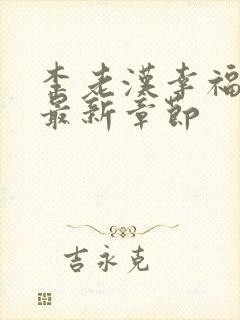 李老漢幸福
最新章節
吉永克